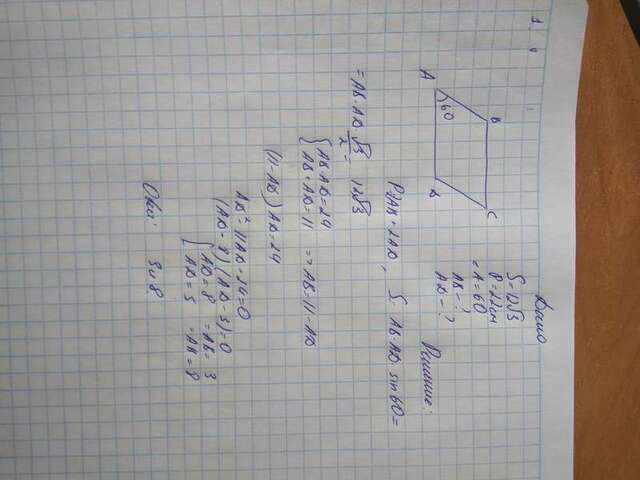 1.
A
B
C
D
60
Дано
S=12√3
P=22см
∠A=60
AB-?
AD-?
Решение:
P=2AB+2AD, S AB·AD sin60=
=AB·AD √3/2 = 12√3
{AB·AD=24
{AB+AD=11 => AB=11-AD
(11-AD)AD=24
AD²-11AD+24=0
(AD-8)(AD-3)=0
{AD=8 =AB=3
{AD=3 =AB=8
Ответ: 3и8